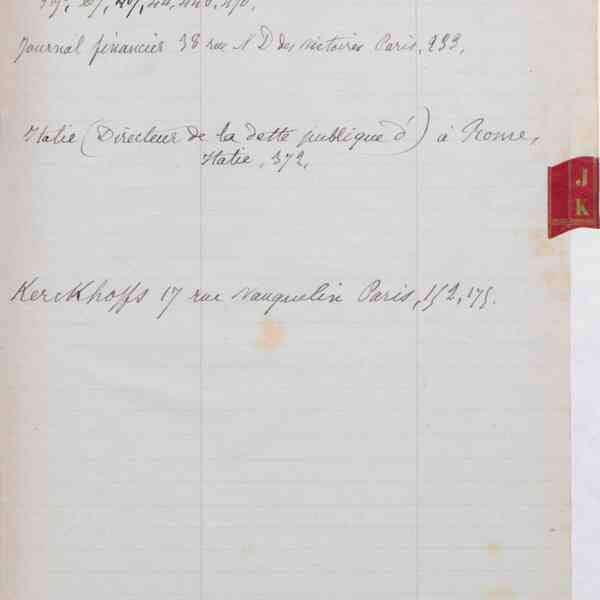 Journal financier 38 rue N D des victoires Paris, 233,
Italie (Directeur de la dette publique d') à Rome,
Italie, 372,
J
K
Kerckhoffs 17 rue Vauquelin Paris, 152, 175.